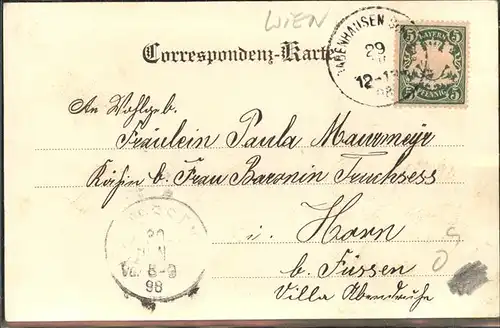 WIEN
Correspondenz-Karte
BABENHAUSEN
29
12-1
98
5 BAYERN 5
PFENNIG
An Wohlgeb.
Fräulein Paula Maurmeyr
Köchin b. Frau Baronin Truchsess
i. Horn
b. Füssen
Villa Abendruhe
FÜSSEN
30
8-9
98